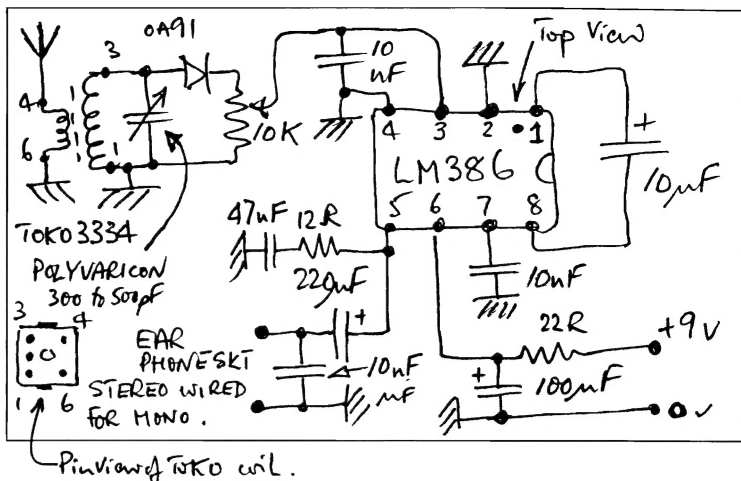 OA91
3
4
6
1
10K
10
nF
Top View
4 3 2 1
LM386
5 6 7 8
+
10µF
TOKO 3334
POLYVARICON
300 to 500pF
3 4
1 6
47nF 12R
220µF +
EAR
PHONE SKT
STEREO WIRED
FOR MONO.
10nF
µF
10nF
22R
+9V
+
100µF
0V
Pin View of TOKO coil.